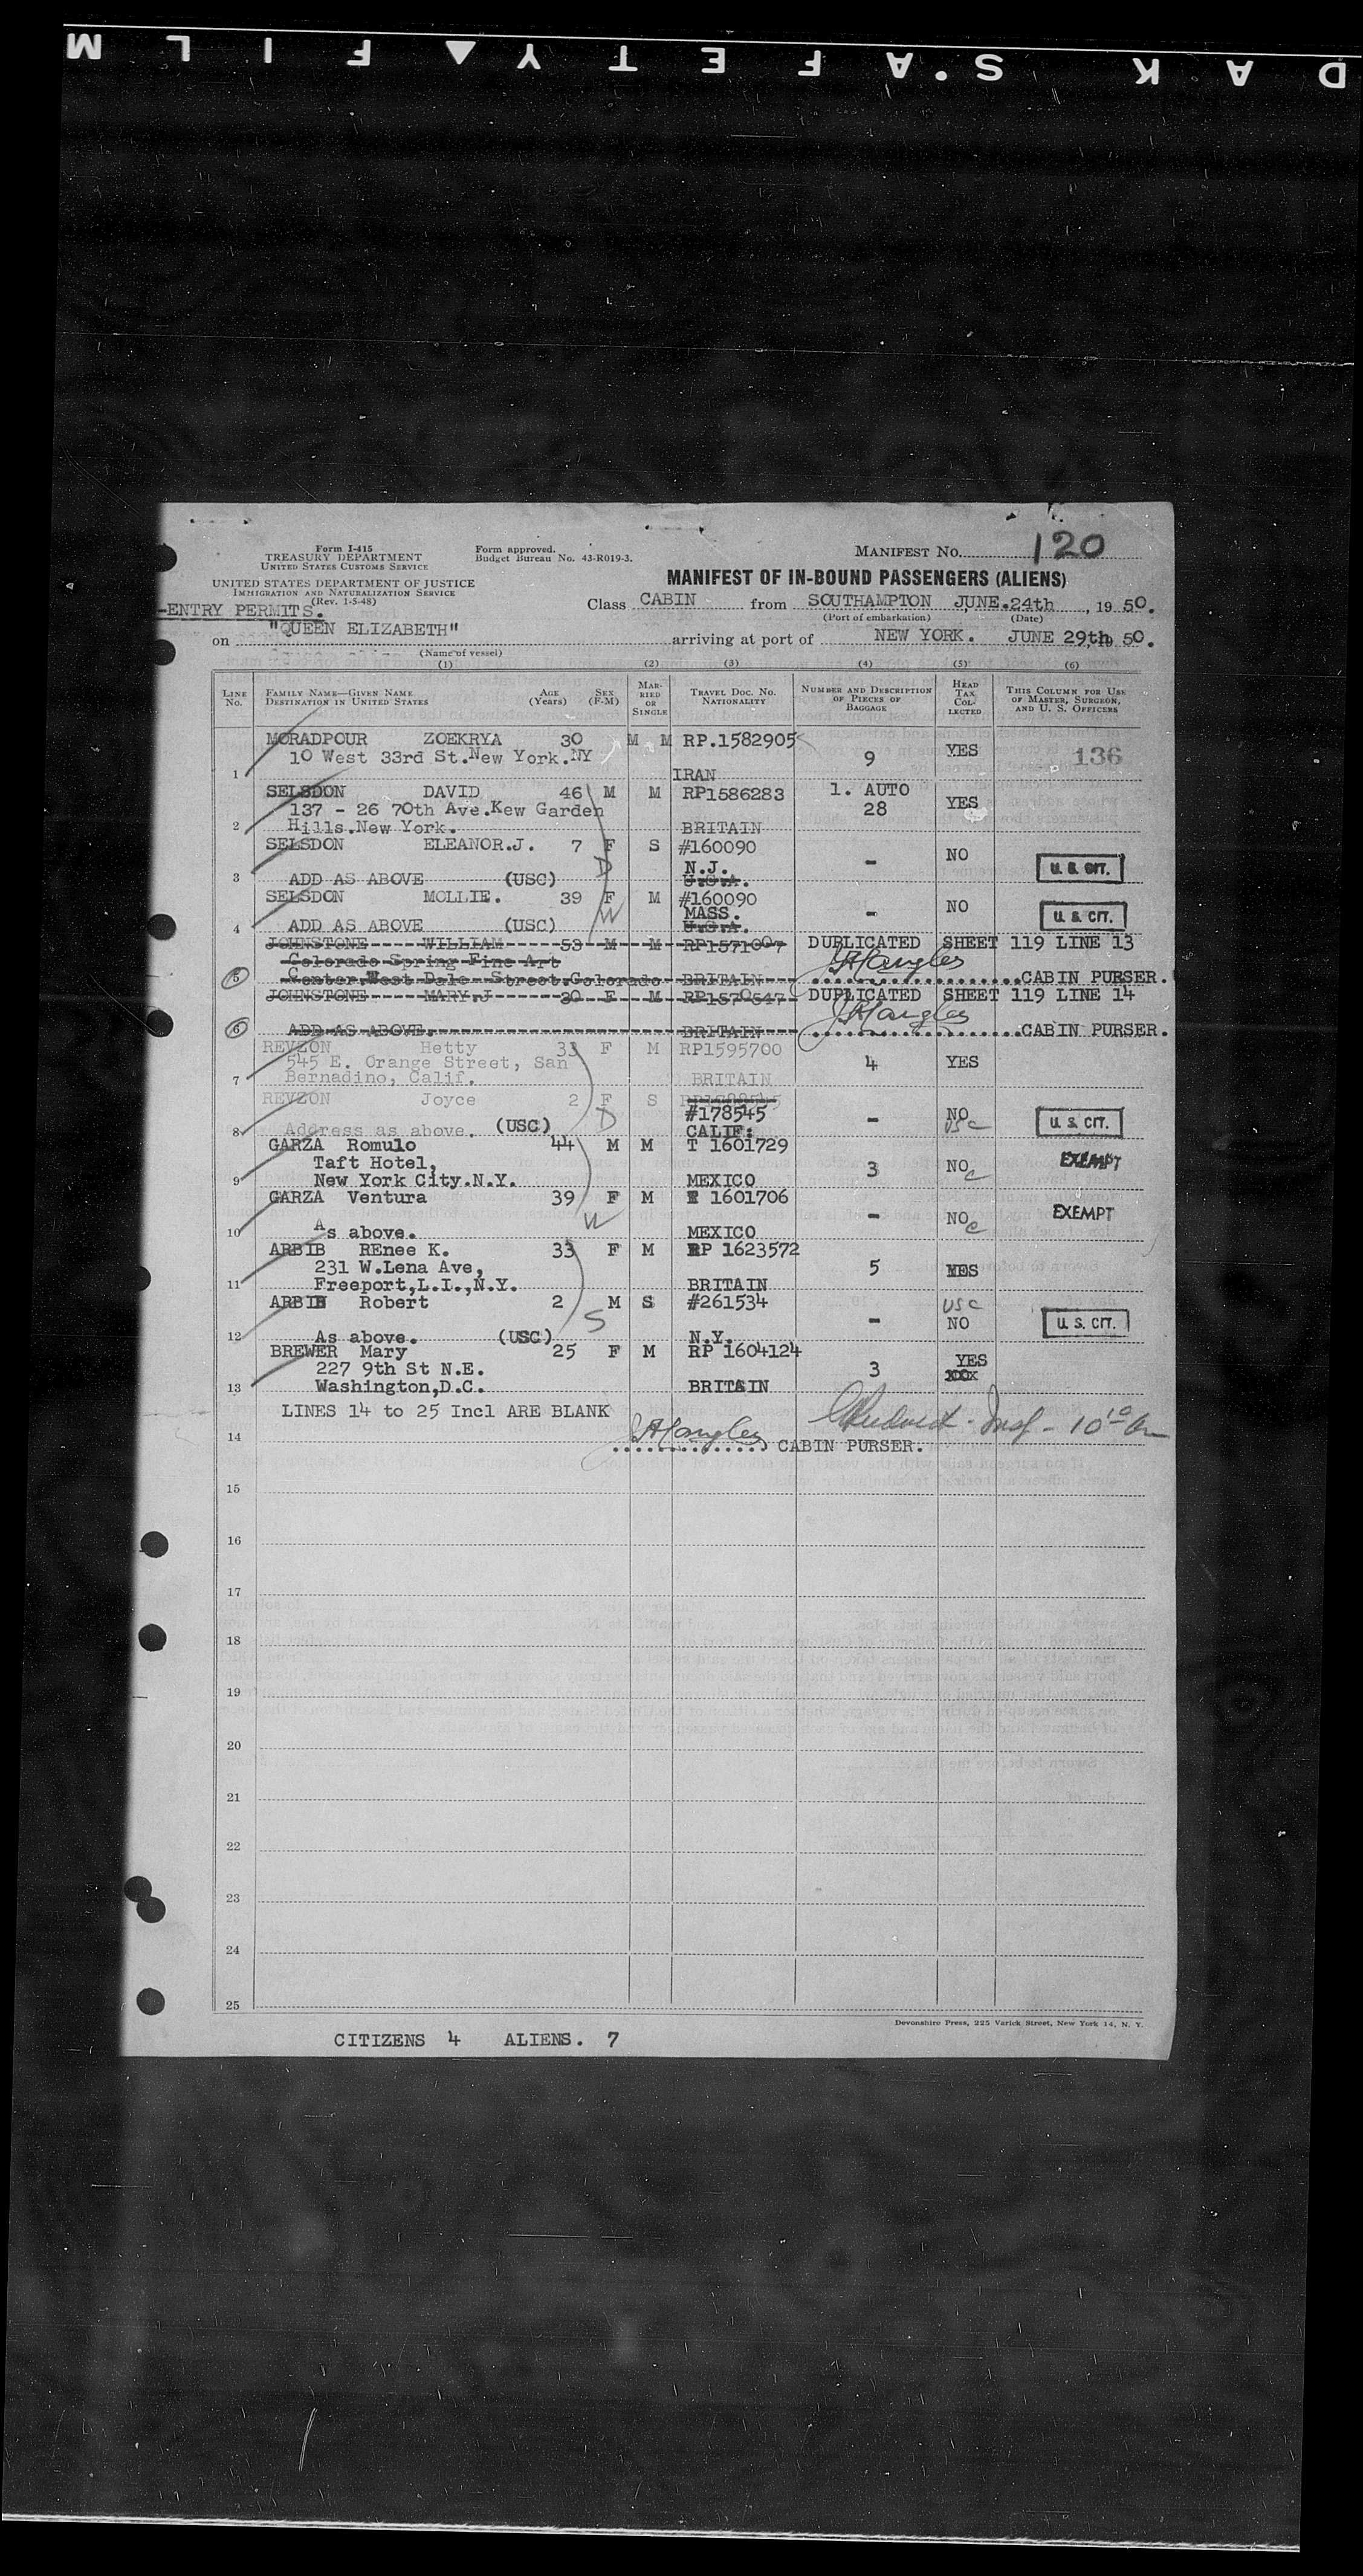 KODAK S'AFETY▲FILM
Form I-415
TREASURY DEPARTMENT
UNITED STATES CUSTOMS SERVICE
UNITED STATES DEPARTMENT OF JUSTICE
IMMIGRATION AND NATURALIZATION SERVICE
(Rev. 1-5-48)
Form approved.
Budget Bureau No. 43-R019-3.
MANIFEST NO. 120
MANIFEST OF IN-BOUND PASSENGERS (ALIENS)
-ENTRY PERMITS.
Class CABIN from SOUTHAMPTON JUNE.24th, 1950.
(Port of embarkation) (Date)
on "QUEEN ELIZABETH" arriving at port of NEW YORK. JUNE 29,th 50.
(Name of vessel)
(1) (2) (3) (4) (5) (6)
LINE No. FAMILY NAME—GIVEN NAME DESTINATION IN UNITED STATES AGE (Years) SEX (F-M) MARRIED OR SINGLE TRAVEL DOC. NO. NATIONALITY NUMBER AND DESCRIPTION OF PIECES OF BAGGAGE HEAD TAX COLLECTED THIS COLUMN FOR USE OF MASTER, SURGEON, AND U. S. OFFICERS
MORADPOUR ZOEKRYA 30 M M RP.1582905 YES
10 West 33rd St.New York.NY 9 136
1 IRAN
SELSDON DAVID 46 M M RP1586283 1. AUTO YES
137 - 26 70th Ave.Kew Garden 28
2 Hills.New York. BRITAIN
SELSDON ELEANOR.J. 7 F S #160090 - NO
D N.J. U. S. CIT.
3 ADD AS ABOVE (USC) U.S.A.
SELSDON MOLLIE. 39 F M #160090 - NO
W MASS. U. S. CIT.
4 ADD AS ABOVE (USC) U.S.A.
JOHNSTONE WILLIAM 53 M M RP1571007 DUPLICATED SHEET 119 LINE 13
Colorado Spring Fine Art
5 Center.West Dale Street.Colorado BRITAIN CABIN PURSER.
JOHNSTONE MARY.J 30 F M RP1570547 DUPLICATED SHEET 119 LINE 14
6 ADD AS ABOVE. BRITAIN CABIN PURSER.
REVZON Hetty 33 F M RP1595700 4 YES
545 E. Orange Street, San
7 Bernadino, Calif. BRITAIN
REVZON Joyce 2 F S
D #178545 - NO USC U. S. CIT.
8 Address as above. (USC) CALIF:
GARZA Romulo 44 M M T 1601729
Taft Hotel, 3 NO c EXEMPT
9 New York City.N.Y. MEXICO
GARZA Ventura 39 F M T 1601706
W - NO c EXEMPT
10 As above. MEXICO
ARBIB REnee K. 33 F M RP 1623572
231 W.Lena Ave, 5 YES
11 Freeport,L.I.,N.Y. BRITAIN
ARBIB Robert 2 M S #261534 USC
S - NO U. S. CIT.
12 As above. (USC) N.Y.
BREWER Mary 25 F M RP 1604124 YES
227 9th St N.E. 3
13 Washington,D.C. BRITAIN
LINES 14 to 25 Incl ARE BLANK
14 CABIN PURSER.
15
16
17
18
19
20
21
22
23
24
25
Devonshire Press, 225 Varick Street, New York 14, N. Y.
CITIZENS 4 ALIENS. 7